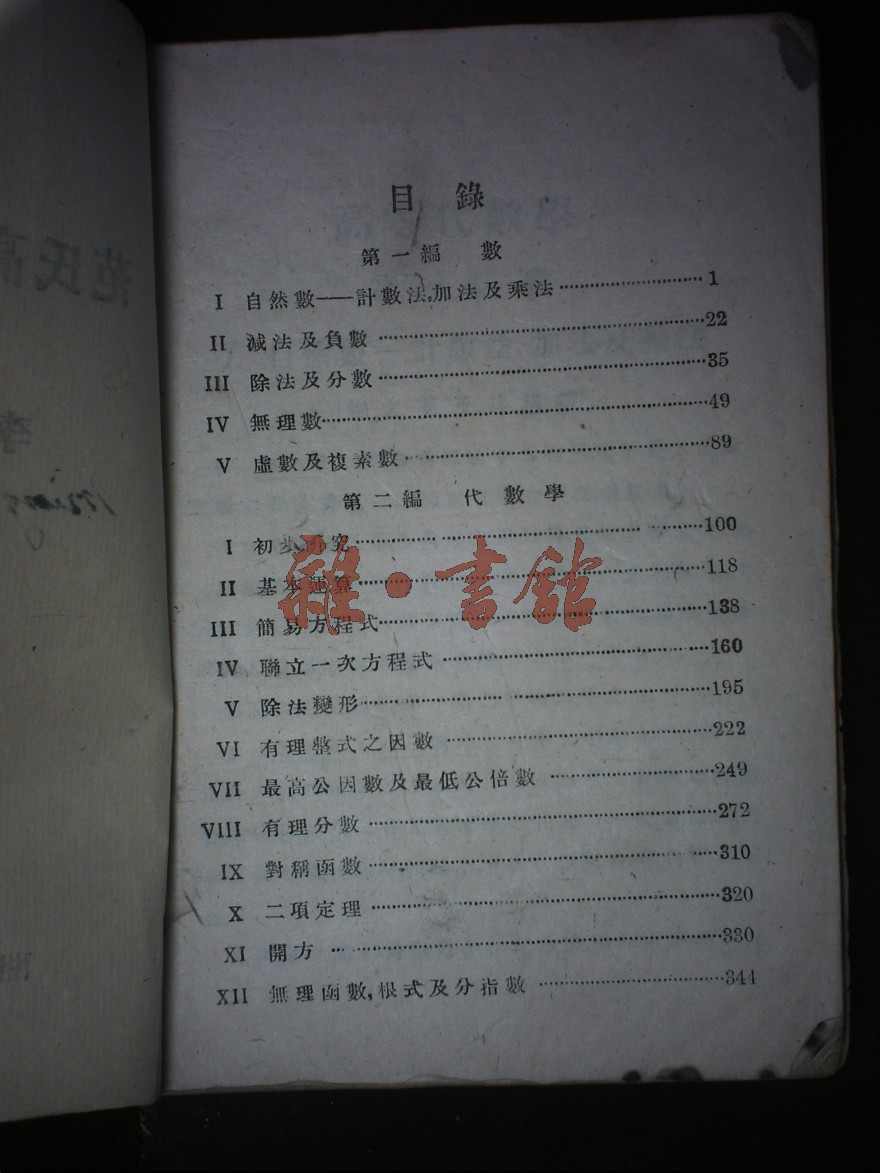 目錄
第一編 數
I 自然數——計數法,加法及乘法 1
II 減法及負數 22
III 除法及分數 35
IV 無理數 49
V 虛數及複素數 89
第二編 代數學
I 初步研究 100
II 基本運算 118
III 簡易方程式 138
IV 聯立一次方程式 160
V 除法變形 195
VI 有理整式之因數 222
VII 最高公因數及最低公倍數 249
VIII 有理分數 272
IX 對稱函數 310
X 二項定理 320
XI 開方 330
XII 無理函數,根式及分指數 344
雜·書館